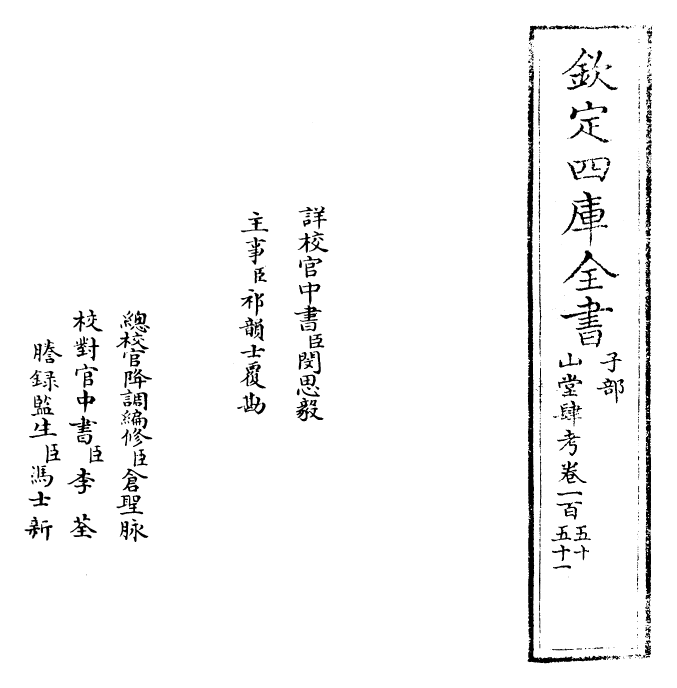 欽定四庫全書
子部
山堂肆考卷一百五十
五十一
詳校官中書臣閔思毅
主事臣祁韻士覆勘
總校官降調編修臣倉聖脉
校對官中書臣李荃
謄録監生臣馮士新